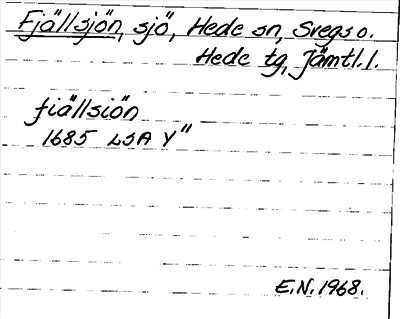 Fjällsjön, sjö, Hede sn, Svegs o.
Hede tg, Jämtl. l.
fiällsiön
1685 LSA Y"
E.N. 1968.